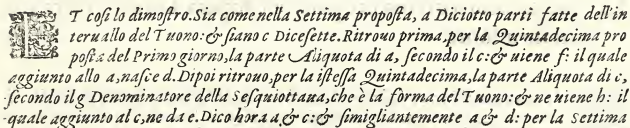 ET cosi lo dimoſtro. Sia come nella Settima propoſta, a Diciotto parti fatte dell'in
teruallo del Tuono: & ſiano c Diceſette. Ritrouo prima, per la Quintadecima pro
poſta del Primo giorno, la parte Aliquota di a, ſecondo il c: & uiene f: il quale
aggiunto allo a, naſce d. Dipoi ritrouo, per la iſteſſa Quintadecima, la parte Aliquota di c,
ſecondo il g Denominatore della Seſquiottaua, che è la forma del Tuono: & ne uiene h: il
quale aggiunto al c, ne da e. Dico hora a & c: & ſimigliantemente a & d: per la Settima